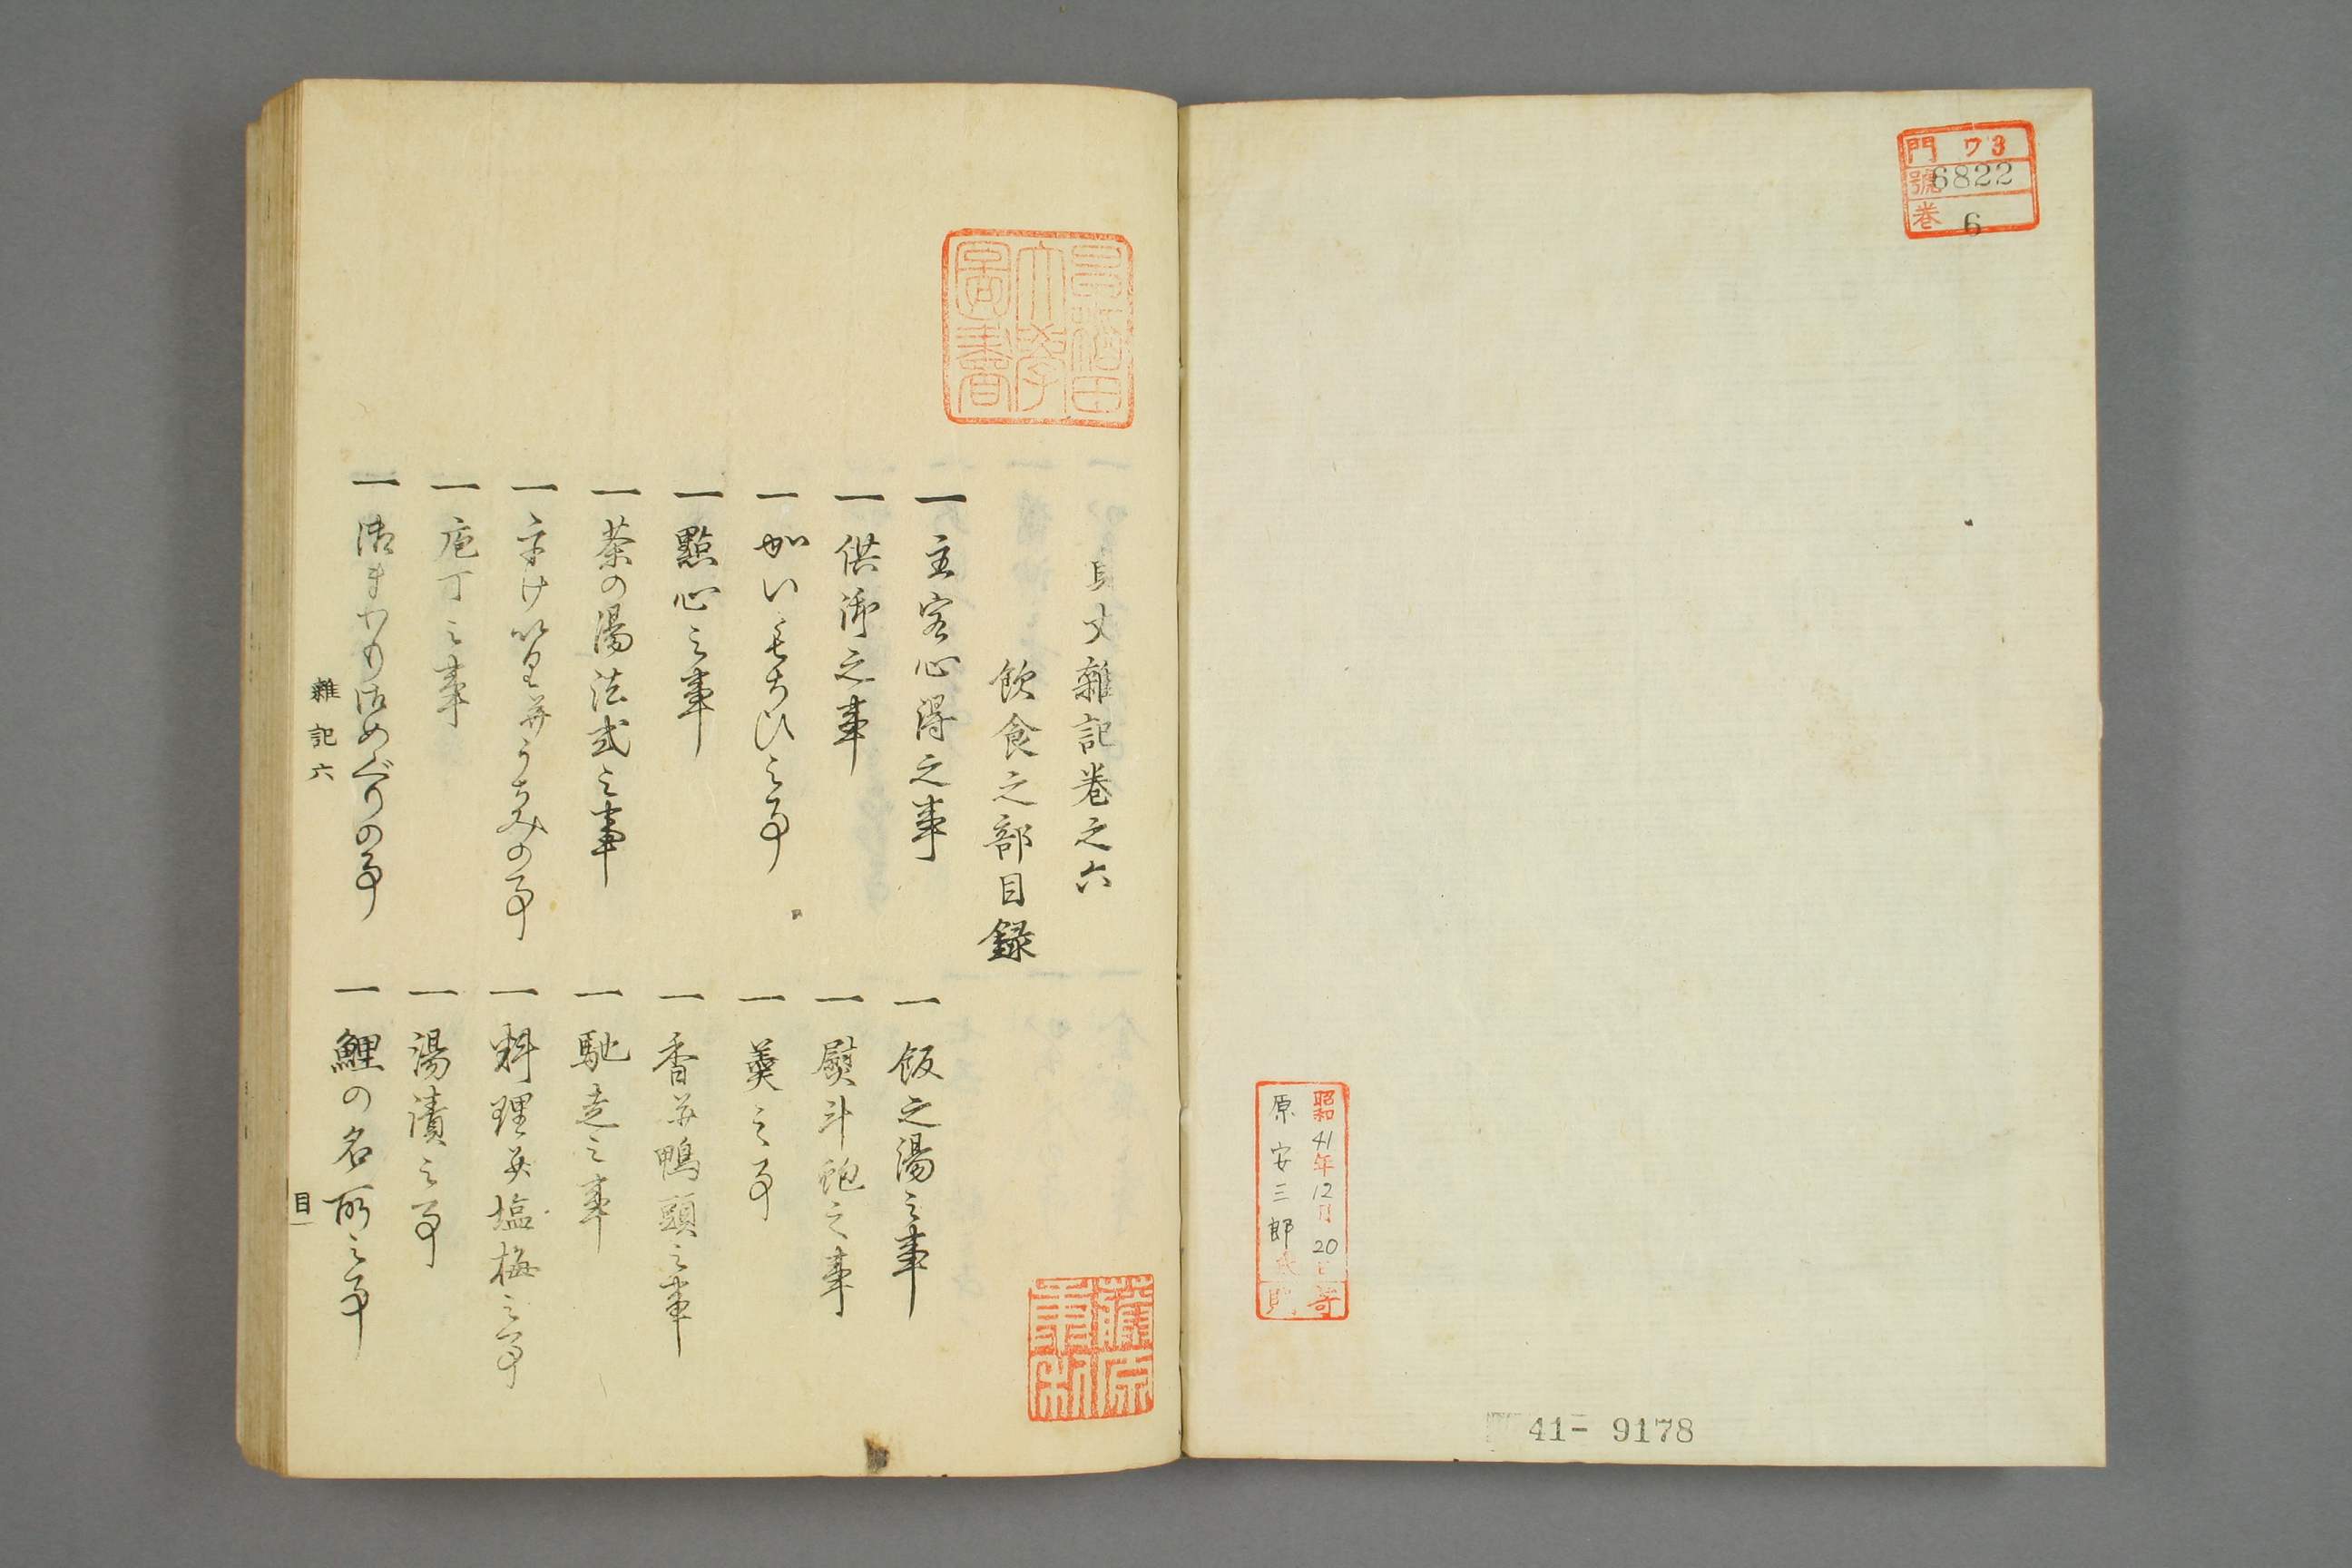 門 ワ3
號 6822
巻 6
昭和41年12月20日 寄
原安三郎氏 贈
41- 9178
早稲田大學圖書
貞丈雜記巻之六
飲食之部目録
一 主客心得之事
一 飯之湯之事
一 供御之事
一 熨斗鮑之事
一 かいもちひ之事
一 羹之事
一 點心之事
一 香并鴨頭之事
一 茶の湯法式之事
一 馳走之事
一 うけいり并うちみの事
一 料理并塩梅之事
一 庖丁之事
一 湯漬之事
一 御まわり御めぐりの事
一 鯉の名所之事
雜記六
目一
藤原